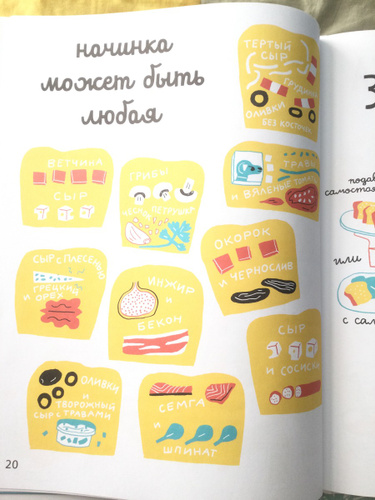 начинка
может быть
любая
ТЕРТЫЙ
СЫР
ГРУДИНКА
ОЛИВКИ
БЕЗ КОСТОЧЕК
ВЕТЧИНА
СЫР
ГРИБЫ
ПЕТРУШКА
ТРАВЫ
И ВЯЛЕНЫЕ ТОМАТЫ
СЫР С ПЛЕСЕНЬЮ
И ГРЕЦКИЙ
ОРЕХ
ИНЖИР
И
БЕКОН
ОКОРОК
И ЧЕРНОСЛИВ
СЫР
И СОСИСКИ
ОЛИВКИ
И ТВОРОЖНЫЙ
СЫР С ТРАВАМИ
СЕМГА
И
ШПИНАТ
20
или
с сам